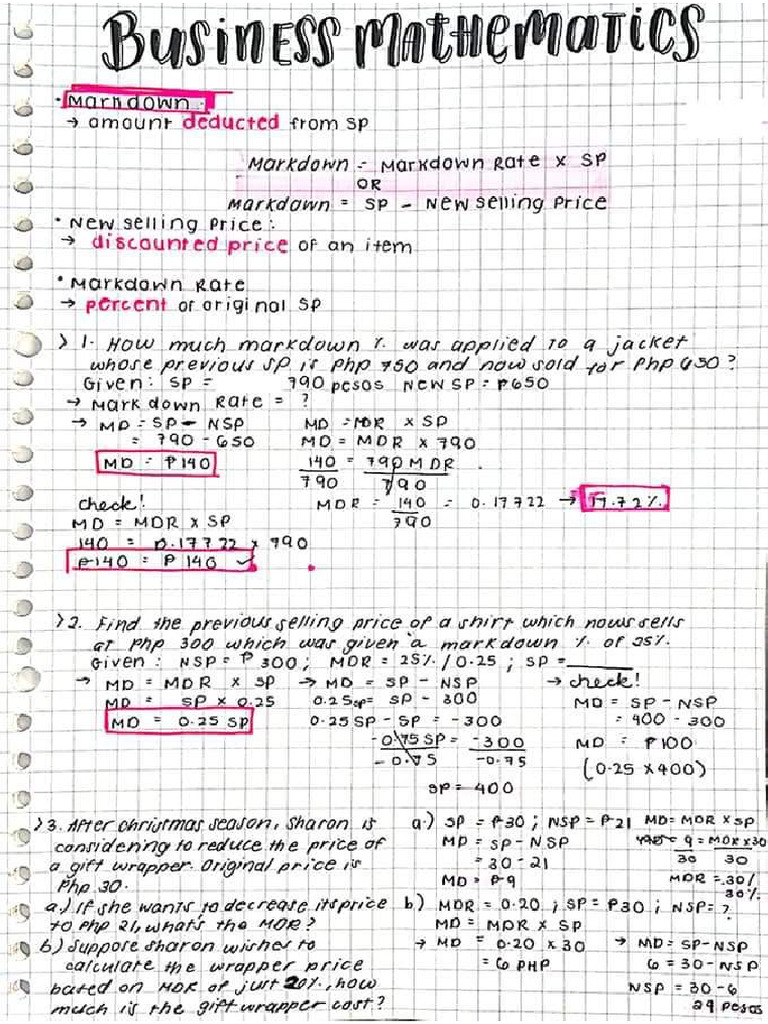 BUSINESS MATHEMATICS
• Markdown.
→ amount deducted from SP
Markdown = Markdown Rate x SP
OR
Markdown = SP - New selling Price
• New selling Price:
→ discounted price of an item
• Markdown Rate
→ percent of original SP
> 1. How much markdown % was applied to a jacket
whose previous SP is Php 750 and now sold for Php 650?
Given: SP = 790 pesos NEW SP = ₱650
→ Mark down Rate = ?
→ MD = SP - NSP
= 790 - 650
MD = ₱140
MD = MDR x SP
MD = MDR x 790
140 = 790 MDR
790 790
MDR = 140 = 0.17722 → 17.72%
790
check!
MD = MDR x SP
140 = 0.17722 x 790
₱140 = ₱140 ✓
> 2. Find the previous selling price of a shirt which nows sells
at Php 300 which was given a markdown % of 25%.
Given: NSP = ₱300; MDR = 25% / 0.25 ; SP = ______
→ MD = MDR x SP
MD = SP x 0.25
MD = 0.25 SP
→ MD = SP - NSP
0.25SP = SP - 300
0.25 SP - SP = -300
-0.75 SP = -300
-0.75 -0.75
SP = 400
→ check!
MD = SP - NSP
= 400 - 300
MD = ₱100
(0.25 x 400)
> 3. After christmas season, Sharon is
considering to reduce the price of
a gift wrapper. Original price is
Php 30.
a.) If she wants to decrease its price
to Php 21, what's the MDR?
b) Suppose sharon wishes to
calculate the wrapper price
based on MDR of just 20%, how
much is the gift wrapper cost?
a.) SP = ₱30 ; NSP = ₱21
MD = SP - NSP
= 30 - 21
MD = ₱9
MD = MDR x SP
9 = MDR x 30
30 30
MDR = .30/
30%
b) MDR = 0.20 ; SP = ₱30 ; NSP = ?
MD = MDR x SP
→ MD = 0.20 x 30
= 6 PHP
→ MD = SP - NSP
6 = 30 - NSP
NSP = 30 - 6
24 pesos